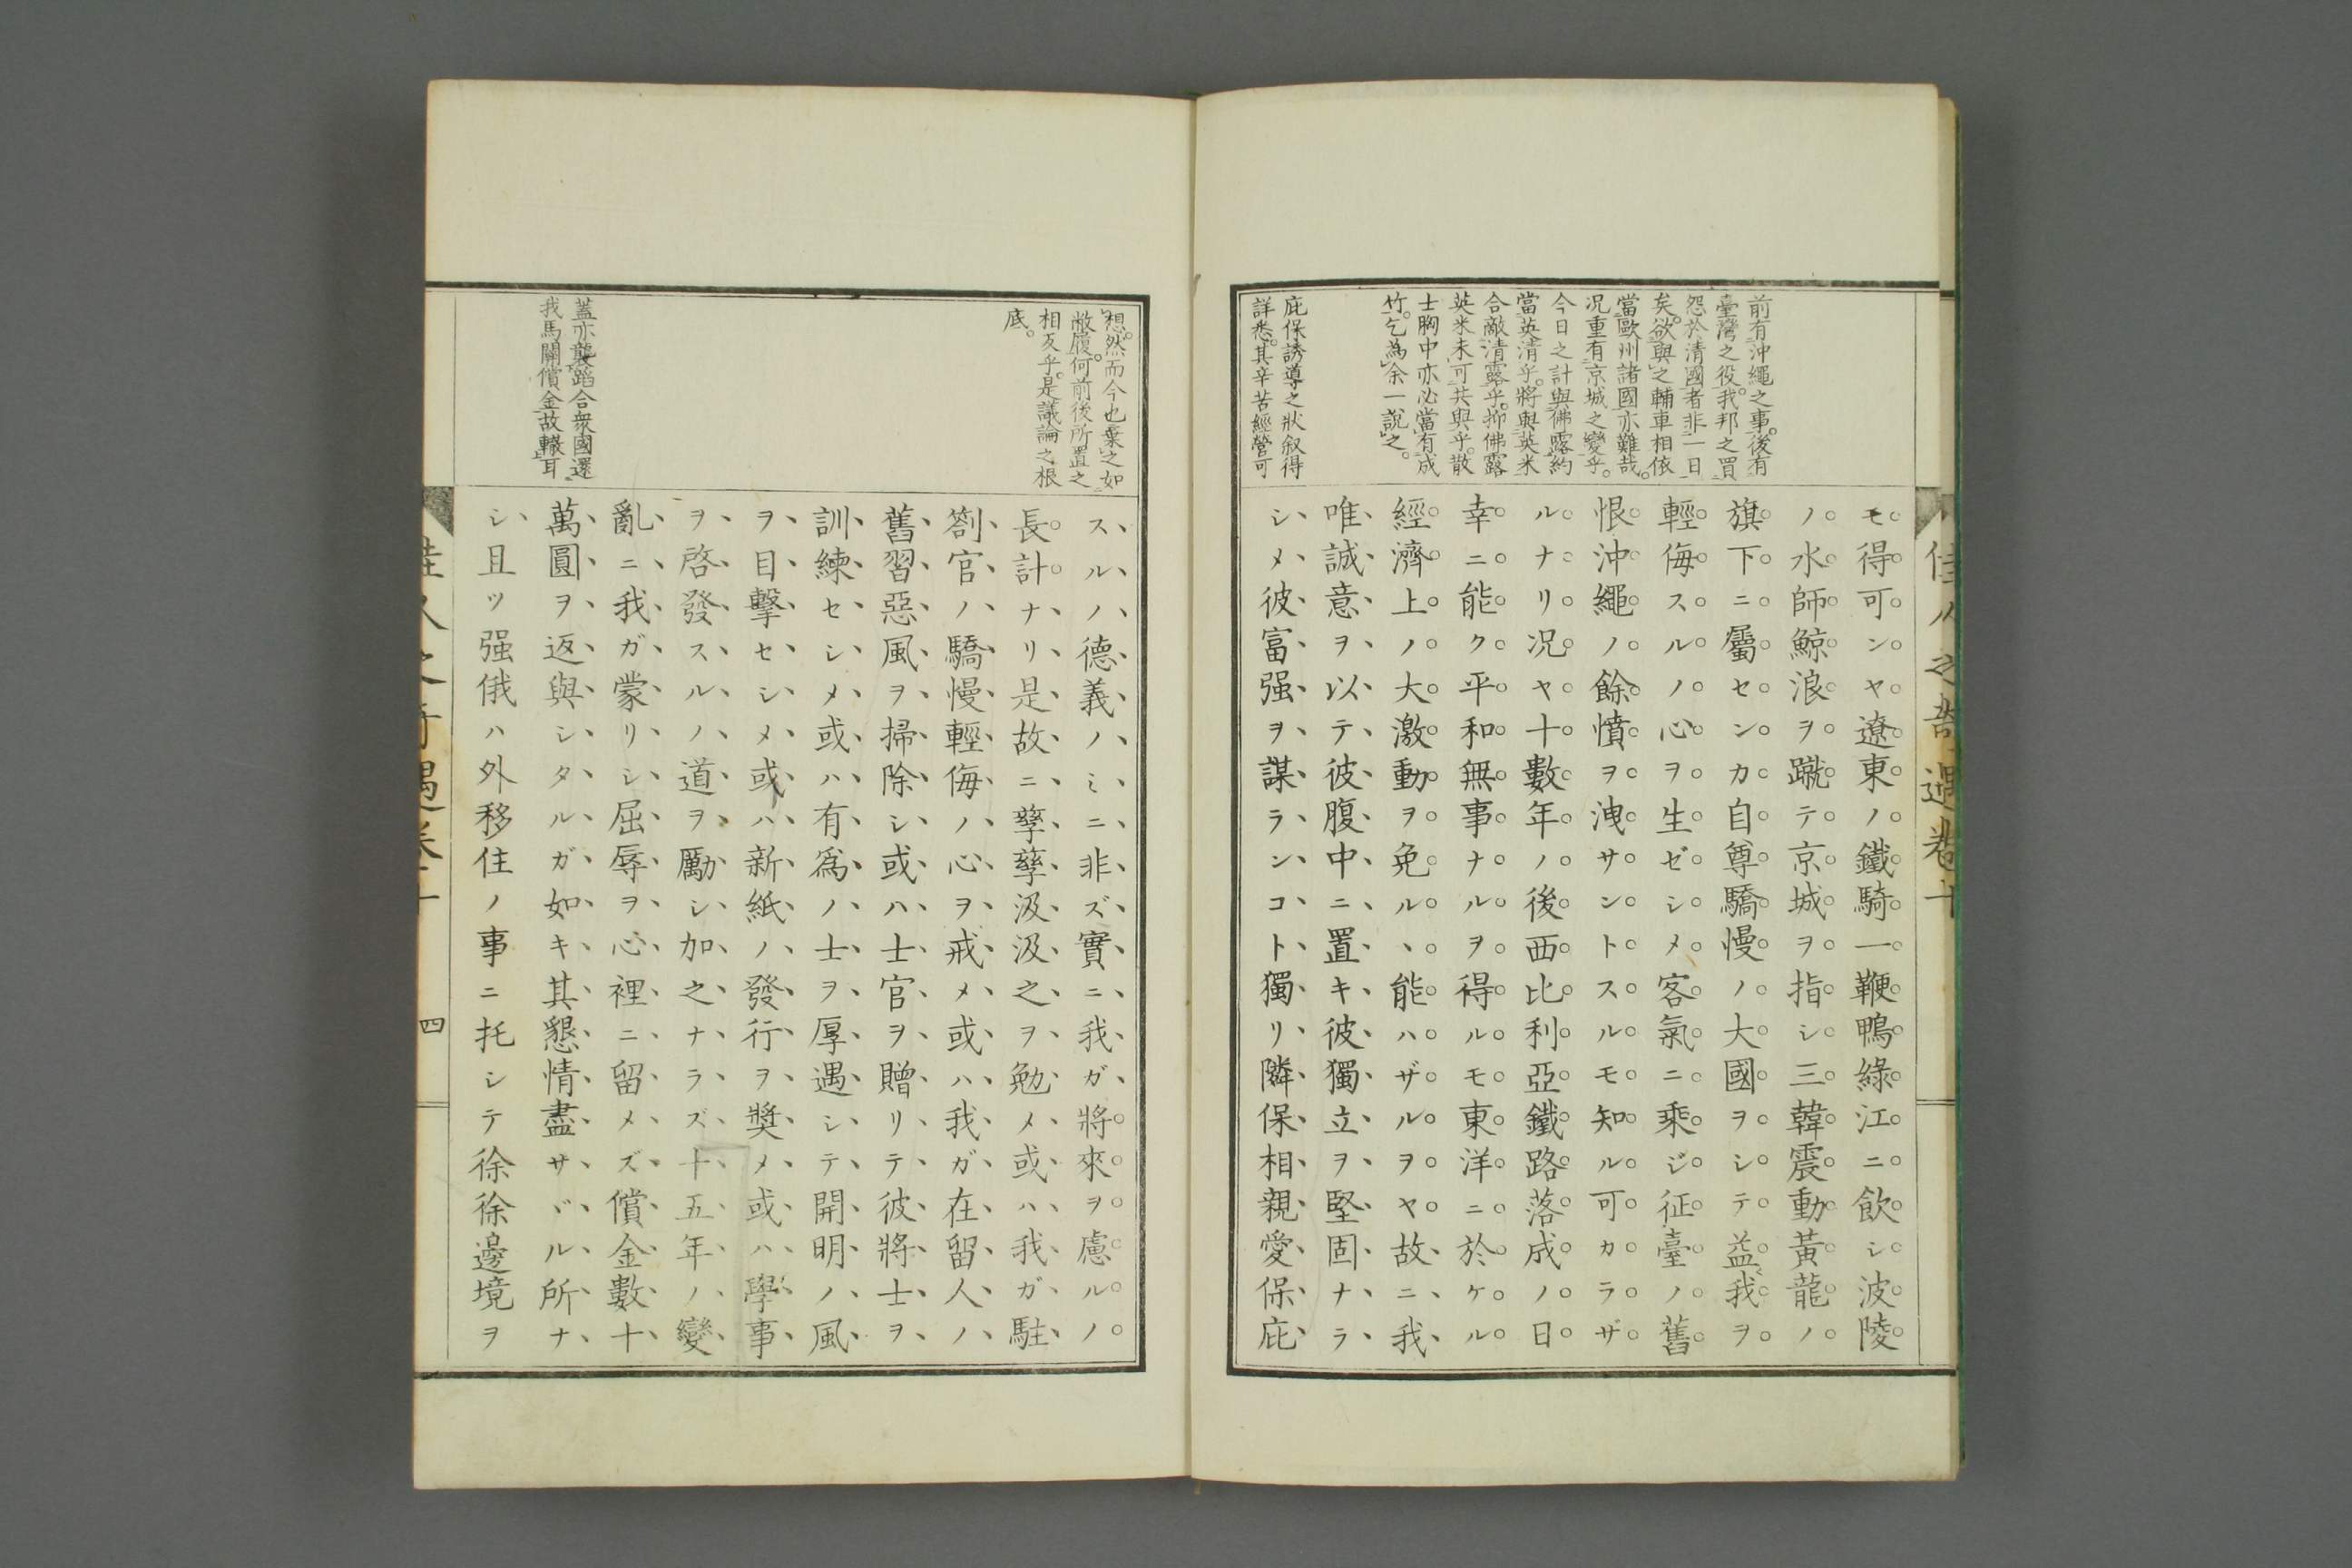 佳人之奇遇卷十
前有沖繩之事。後有
臺灣之役。我邦之買
怨於清國者非一日
矣。欲與之輔車相依
當歐州諸國亦難哉。
况重有京城之變乎。
今日之計與佛露約
當英清乎。將與英米
合敵清露乎。抑佛露
英米未可共與乎。散
士胸中亦必當有成
竹。乞為余一說之。
庇保誘導之狀叙得
詳悉。其辛苦經營可
モ得可ンヤ遼東ノ鐵騎一鞭鴨綠江ニ飲シ波陵
ノ水師鯨浪ヲ蹴テ京城ヲ指シ三韓震動黃龍ノ
旗下ニ屬センカ自尊驕慢ノ大國ヲシテ益〻我ヲ
輕侮スルノ心ヲ生ゼシメ客氣ニ乘ジ征臺ノ舊
恨沖繩ノ餘憤ヲ洩サントスルモ知ル可カラザ
ルナリ况ヤ十數年ノ後西比利亞鐵路落成ノ日
幸ニ能ク平和無事ナルヲ得ルモ東洋ニ於ケル
經濟上ノ大激動ヲ免ルヽ能ハザルヲヤ故ニ我
唯誠意ヲ以テ彼腹中ニ置キ彼獨立ヲ堅固ナラ
シメ彼富强ヲ謀ランコト獨リ隣保相親愛保庇
想。然而今也棄之如
敝履。何前後所置之
相反乎。是議論之根
底。
蓋亦襲蹈合衆國還
我馬關償金故轍耳
スルノ德義ノミニ非ズ實ニ我ガ將來ヲ慮ルノ
長計ナリ是故ニ孳孳汲汲之ヲ勉メ或ハ我ガ駐
劄官ノ驕慢輕侮ノ心ヲ戒メ或ハ我ガ在留人ノ
舊習惡風ヲ掃除シ或ハ士官ヲ贈リテ彼將士ヲ
訓練セシメ或ハ有爲ノ士ヲ厚遇シテ開明ノ風
ヲ目擊セシメ或ハ新紙ノ發行ヲ奬メ或ハ學事
ヲ啓發スルノ道ヲ勵シ加之ナラズ十五年ノ變
亂ニ我ガ蒙リシ屈辱ヲ心裡ニ留メズ償金數十
萬圓ヲ返與シタルガ如キ其懇情盡サヾル所ナ
シ且ツ强俄ハ外移住ノ事ニ托シテ徐徐邊境ヲ
四